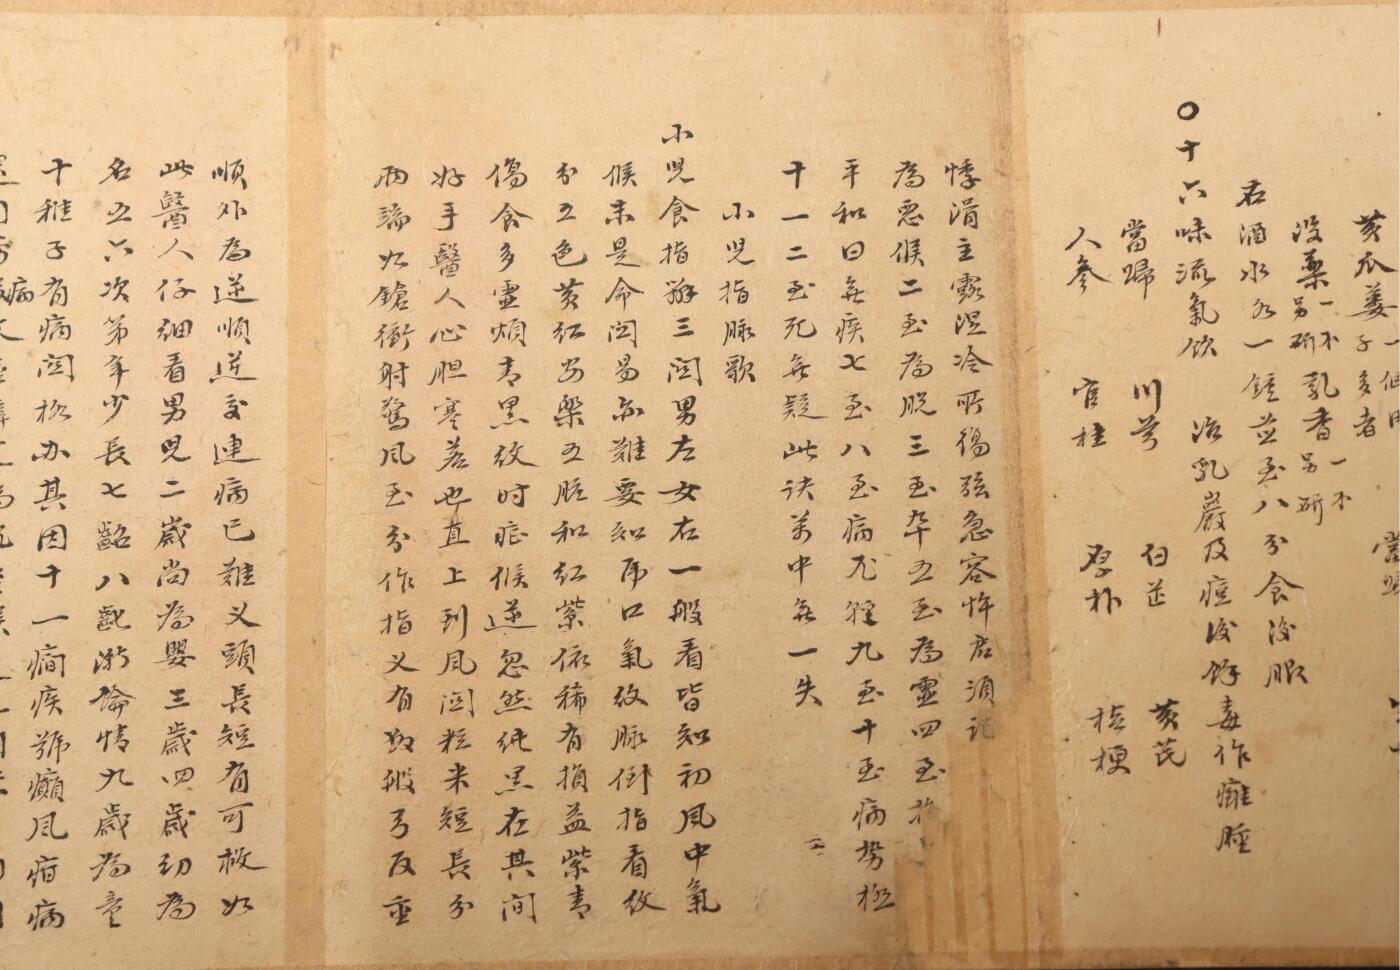 黄瓜蔞子一個用
多者
没藥另研一不 乳香另研一不
右酒水各一鍾並至八分食後服
〇十六味流氣飲 治乳巖及痘後餘毒作癰腫
當歸 川芎 白芷 黄芪
人參 官桂 厚朴 桔梗
悸涓主露湿冷所傷弦急客忤君須記
為惡候二至為脱三至卒五至為靈四至
平和曰無疾七至八至病尤輕九至十至病勢極
十一二至死無疑此訣萬中無一失
小兒指脉歌
小兒食指辨三関男左女右一般看皆知初風中氣
候末是命関易亦難要知虎口氣紋脉倒指看紋
分五色黄紅安樂五脏和紅紫依稀有損益紫青
傷食多靈煩青黒紋时症候逆忽然純黒在其间
好手醫人心胆寒若也直上到風関粒米短長分
兩端如鎗衝射驚風至分作指义有数般弓反重
順外為逆順逆交連病已难义頭長短有可救如
此醫人仔細看男兒二歲尚為嬰三歲四歲幼為
名五六次第年少長七齠八齔漸論情九歲為童
十稚子有病関格办其因十一癇疾號癲風疳病